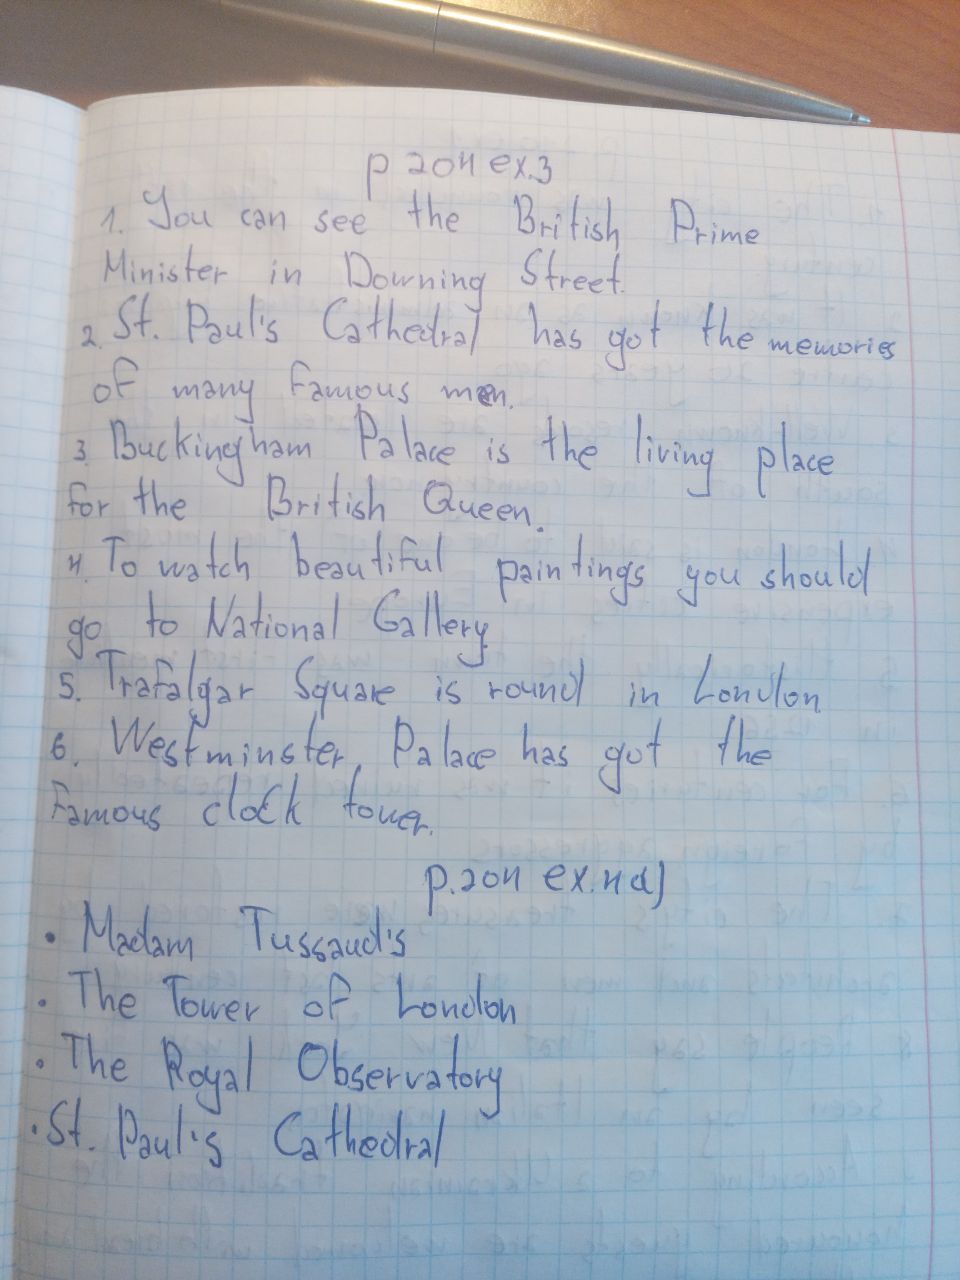 p 204 ex.3
1. You can see the British Prime
Minister in Downing Street.
2. St. Paul's Cathedral has got the memories
of many famous men.
3. Buckingham Palace is the living place
for the British Queen.
4. To watch beautiful paintings you should
go to National Gallery.
5. Trafalgar Square is round in London.
6. Westminster Palace has got the
famous clock tower.
p.204 ex.4 a)
• Madam Tussaud's
• The Tower of London
• The Royal Observatory
• St. Paul's Cathedral